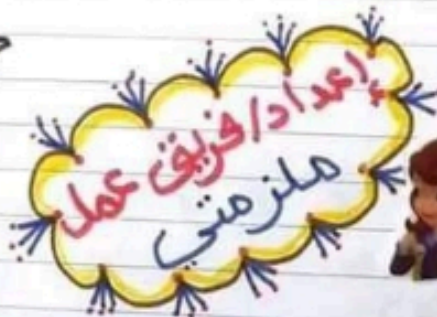 إعداد/فريق عمل
ملزمتي